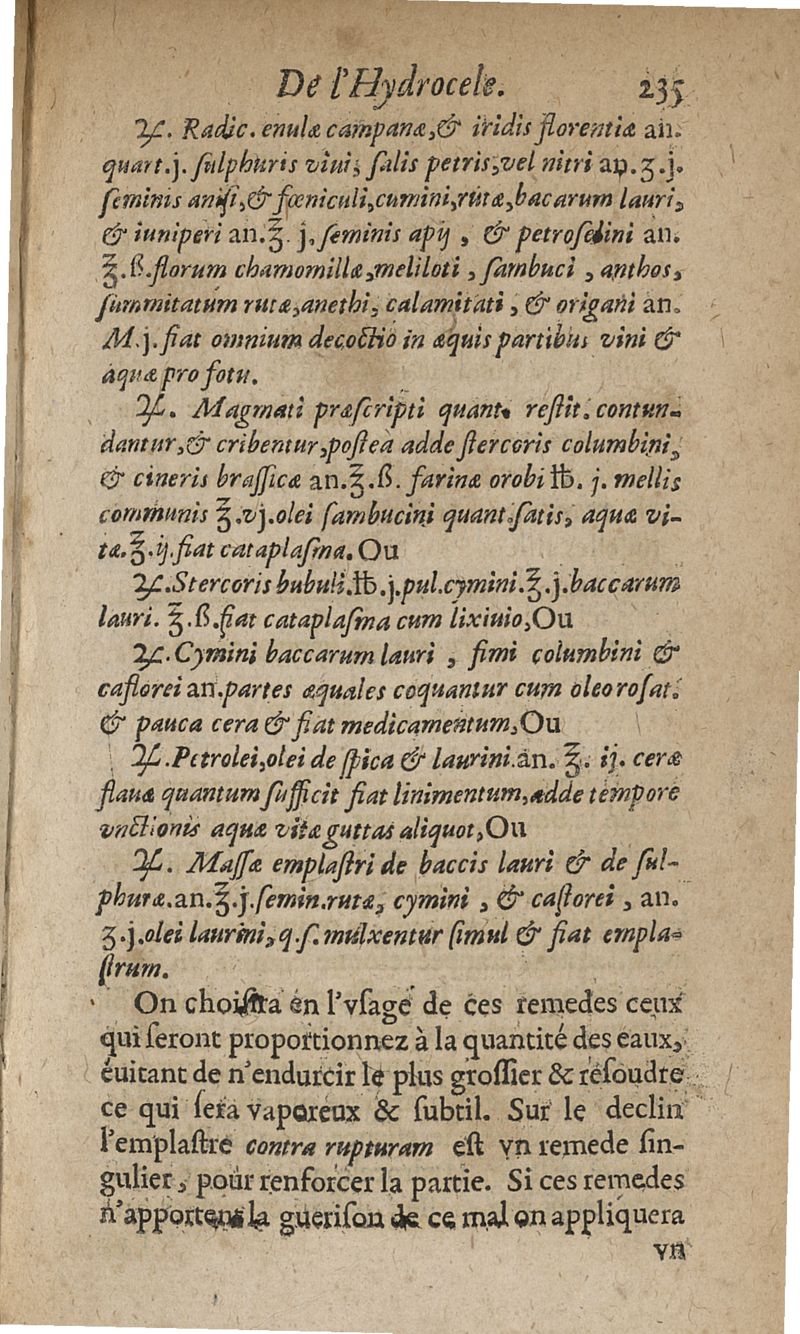 De l'Hydrocele. 235
℞. Radic. enulæ campanæ, & iridis florentiæ an.
quart. j. ſulphuris viui, ſalis petris, vel nitri an. ʒ. j.
ſeminis aniſi, & fœniculi, cumini, rutæ, bacarum lauri,
& iuniperi an. ℥. j, ſeminis apij, & petroſelini an.
℥. ß. florum chamomillæ, meliloti, ſambuci, anthos,
ſummitatum rutæ, anethi, calamitati, & origani an.
M. j. fiat omnium decoctio in æquis partibus vini &
aquæ pro fotu.
℞. Magmati præſcripti quant. reſtit. contun-
dantur, & cribentur, poſtea adde ſtercoris columbini,
& cineris braſſicæ an. ℥. ß. farinæ orobi ℔. j. mellis
communis ℥. vj. olei ſambucini quant. ſatis, aquæ vi-
tæ. ℥. ij. fiat cataplaſma. Ou
℞. Stercoris bubuli. ℔. j. pul. cymini. ℥. j. baccarum
lauri. ℥. ß. fiat cataplaſma cum lixiuio, Ou
℞. Cymini baccarum lauri, fimi columbini &
caſtorei an. partes æquales coquantur cum oleo roſat.
& pauca cera & fiat medicamentum, Ou
℞. Petrolei, olei de ſpica & laurini. an. ℥. ij. ceræ
flauæ quantum ſufficit fiat linimentum, adde tempore
vnctionis aquæ vitæ guttas aliquot, Ou
℞. Maſſæ emplaſtri de baccis lauri & de ſul-
phuræ. an. ℥. j. ſemin. rutæ, cymini, & caſtorei, an.
ʒ. j. olei laurini, q. ſ. mulxentur ſimul & fiat empla-
ſtrum.
On choiſira en l'vſage de ces remedes ceux
qui ſeront proportionnez à la quantité des eaux,
éuitant de n'endurcir le plus groſſier & reſoudre
ce qui ſera vaporeux & ſubtil. Sur le declin
l'emplaſtre contra rupturam eſt vn remede ſin-
gulier, pour renforcer la partie. Si ces remedes
n'apportent la gueriſon de ce mal on appliquera
vn